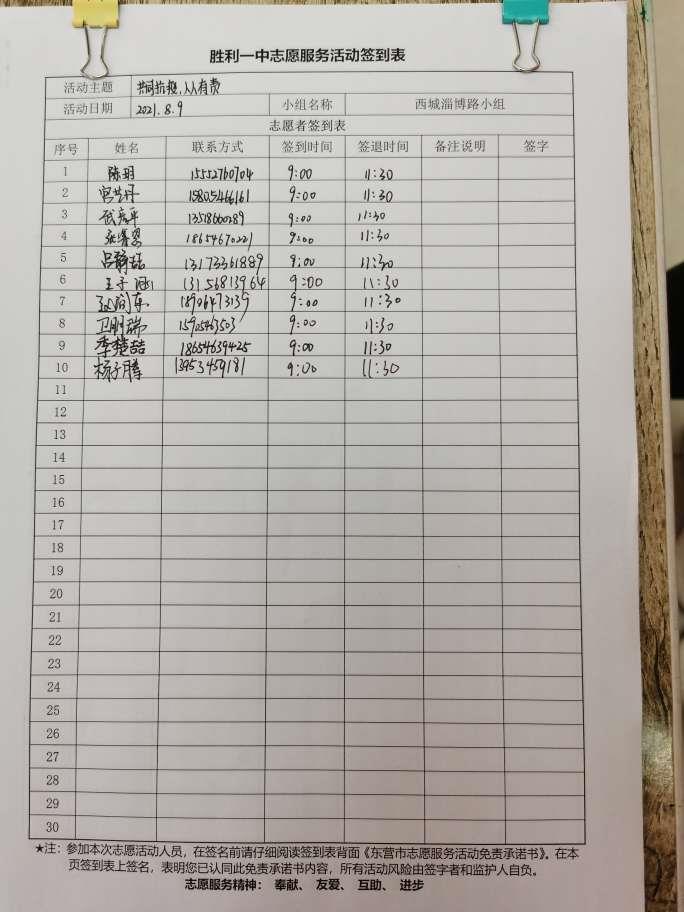 胜利一中志愿服务活动签到表
活动主题 共同抗疫,人人有责
活动日期 2021.8.9 小组名称 西城淄博路小组
志愿者签到表
序号 姓名 联系方式 签到时间 签退时间 备注说明 签字
1 陈玥 15552760704 9:00 11:30
2 15805466161 9:00 11:30
3 13518660289 9:00 11:30
4 18654670221 9:00 11:30
5 吕静喆 13173361889 9:00 11:30
6 13156813964 9:00 11:30
7 18906473139 9:00 11:30
8 卫朋瑞 15905463503 9:00 11:30
9 李楚喆 18654639425 9:00 11:30
10 杨子腾 13953459181 9:00 11:30
11
12
13
14
15
16
17
18
19
20
21
22
23
24
25
26
27
28
29
30
★注:参加本次志愿活动人员,在签名前请仔细阅读签到表背面《东营市志愿服务活动免责承诺书》。在本
页签到表上签名,表明您已认同此免责承诺书内容,所有活动风险由签字者和监护人自负。
志愿服务精神: 奉献、 友爱、 互助、 进步